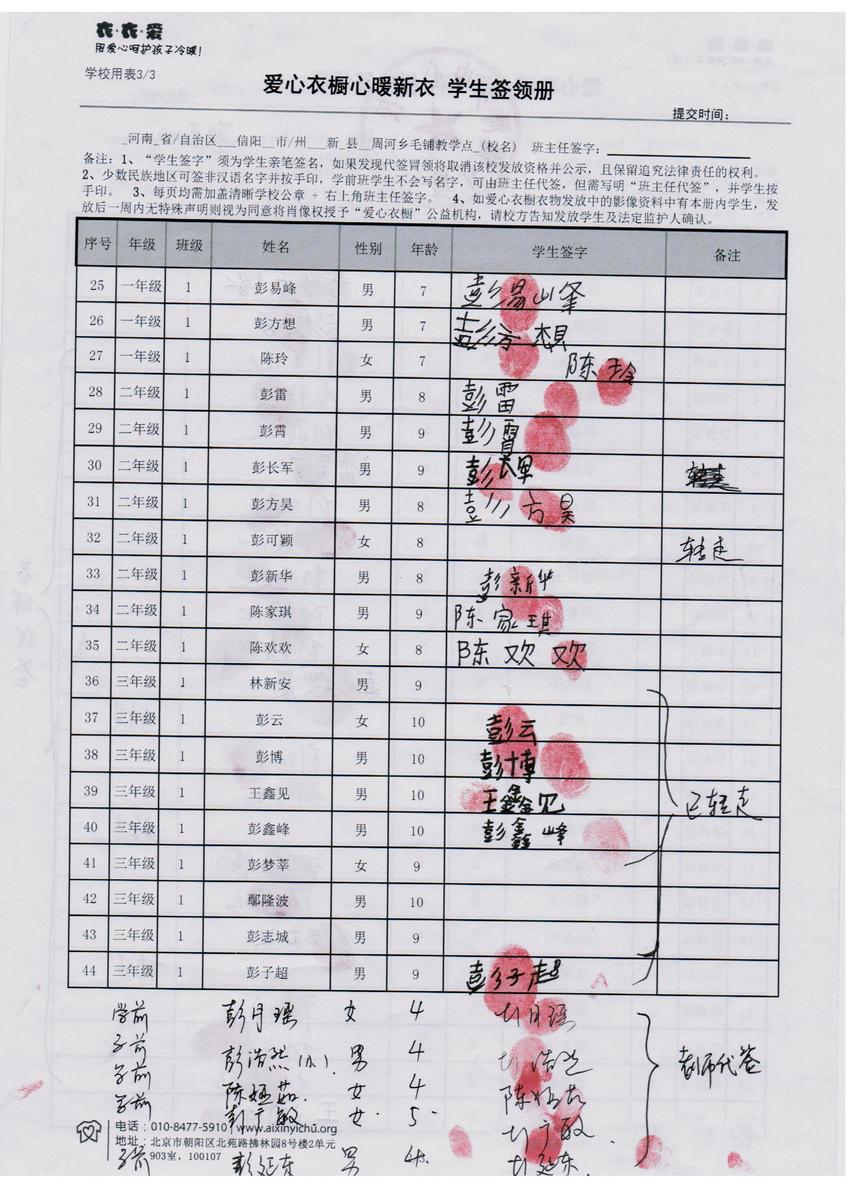 衣·衣·爱
用爱心呵护孩子冷暖！
学校用表3/3
爱心衣橱心暖新衣 学生签领册
提交时间：
_河南_省/自治区___信阳__市/州___新_县__周河乡毛铺教学点_(校名) 班主任签字：
备注：1、“学生签字”须为学生亲笔签名，如果发现代签冒领将取消该校发放资格并公示，且保留追究法律责任的权利。
2、少数民族地区可签非汉语名字并按手印，学前班学生不会写名字，可由班主任代签，但需写明“班主任代签”，并学生按
手印。 3、每页均需加盖清晰学校公章 + 右上角班主任签字。 4、如爱心衣橱衣物发放中的影像资料中有本册内学生，发
放后一周内无特殊声明则视为同意将肖像权授予“爱心衣橱”公益机构，请校方告知发放学生及法定监护人确认。
序号 年级 班级 姓名 性别 年龄 学生签字 备注
25 一年级 1 彭易峰 男 7 彭易峰
26 一年级 1 彭方想 男 7 彭方想
27 一年级 1 陈玲 女 7 陈玲
28 二年级 1 彭雷 男 8 彭雷
29 二年级 1 彭霄 男 9 彭霄
30 二年级 1 彭长军 男 9 彭长军
31 二年级 1 彭方昊 男 8 彭方昊
32 二年级 1 彭可颖 女 8 转走
33 二年级 1 彭新华 男 8 彭新华
34 二年级 1 陈家琪 男 9 陈家琪
35 二年级 1 陈欢欢 女 8 陈欢欢
36 三年级 1 林新安 男 9
37 三年级 1 彭云 女 10 彭云
38 三年级 1 彭博 男 10 彭博
39 三年级 1 王鑫见 男 10 王鑫见 已转走
40 三年级 1 彭鑫峰 男 10 彭鑫峰
41 三年级 1 彭梦莘 女 9
42 三年级 1 鄢隆波 男 10
43 三年级 1 彭志城 男 9
44 三年级 1 彭子超 男 9 彭子超
学前 彭月瑶 女 4 彭月瑶
学前 彭浩然(小) 男 4 彭浩然 老师代签
学前 陈娅茹 女 4 陈娅茹
学前 彭广敏 女 5 彭广敏
电话：010-8477-5910 www.aixinyichu.org
地址：北京市朝阳区北苑路拂林园8号楼2单元
903室，100107
学前 彭延东 男 4 彭延东